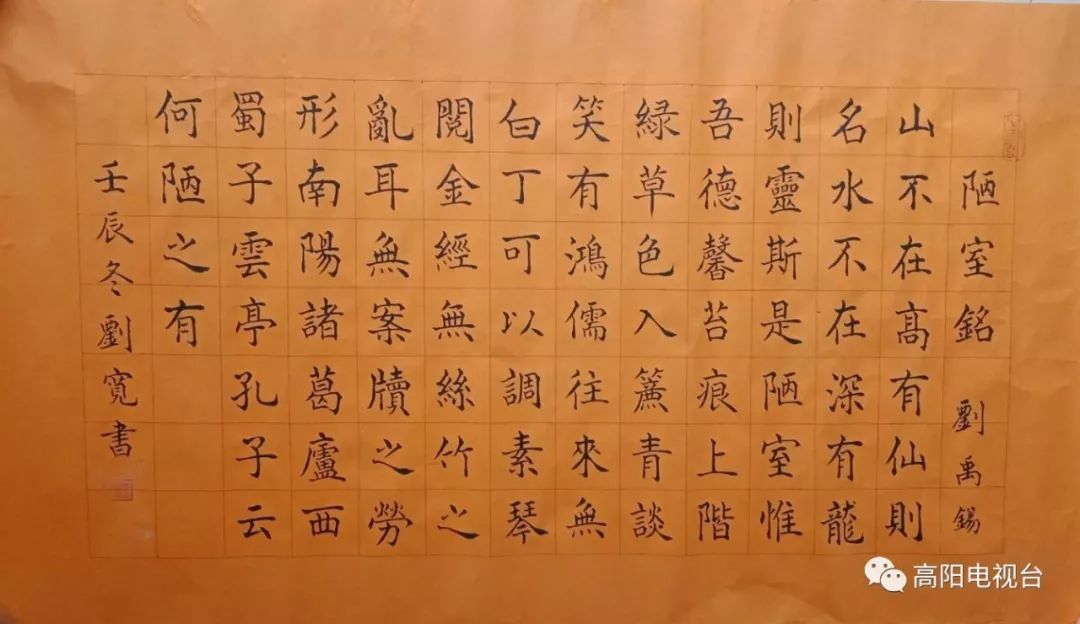 陋室銘 劉禹錫
山不在髙有仙則
名水不在深有龍
則靈斯是陋室惟
吾德馨苔痕上階
緑草色入簾青談
笑有鴻儒往來無
白丁可以調素琴
閱金經無絲竹之
亂耳無案牘之勞
形南陽諸葛廬西
蜀子雲亭孔子云
何陋之有
壬辰冬劉寬書
高阳电视台